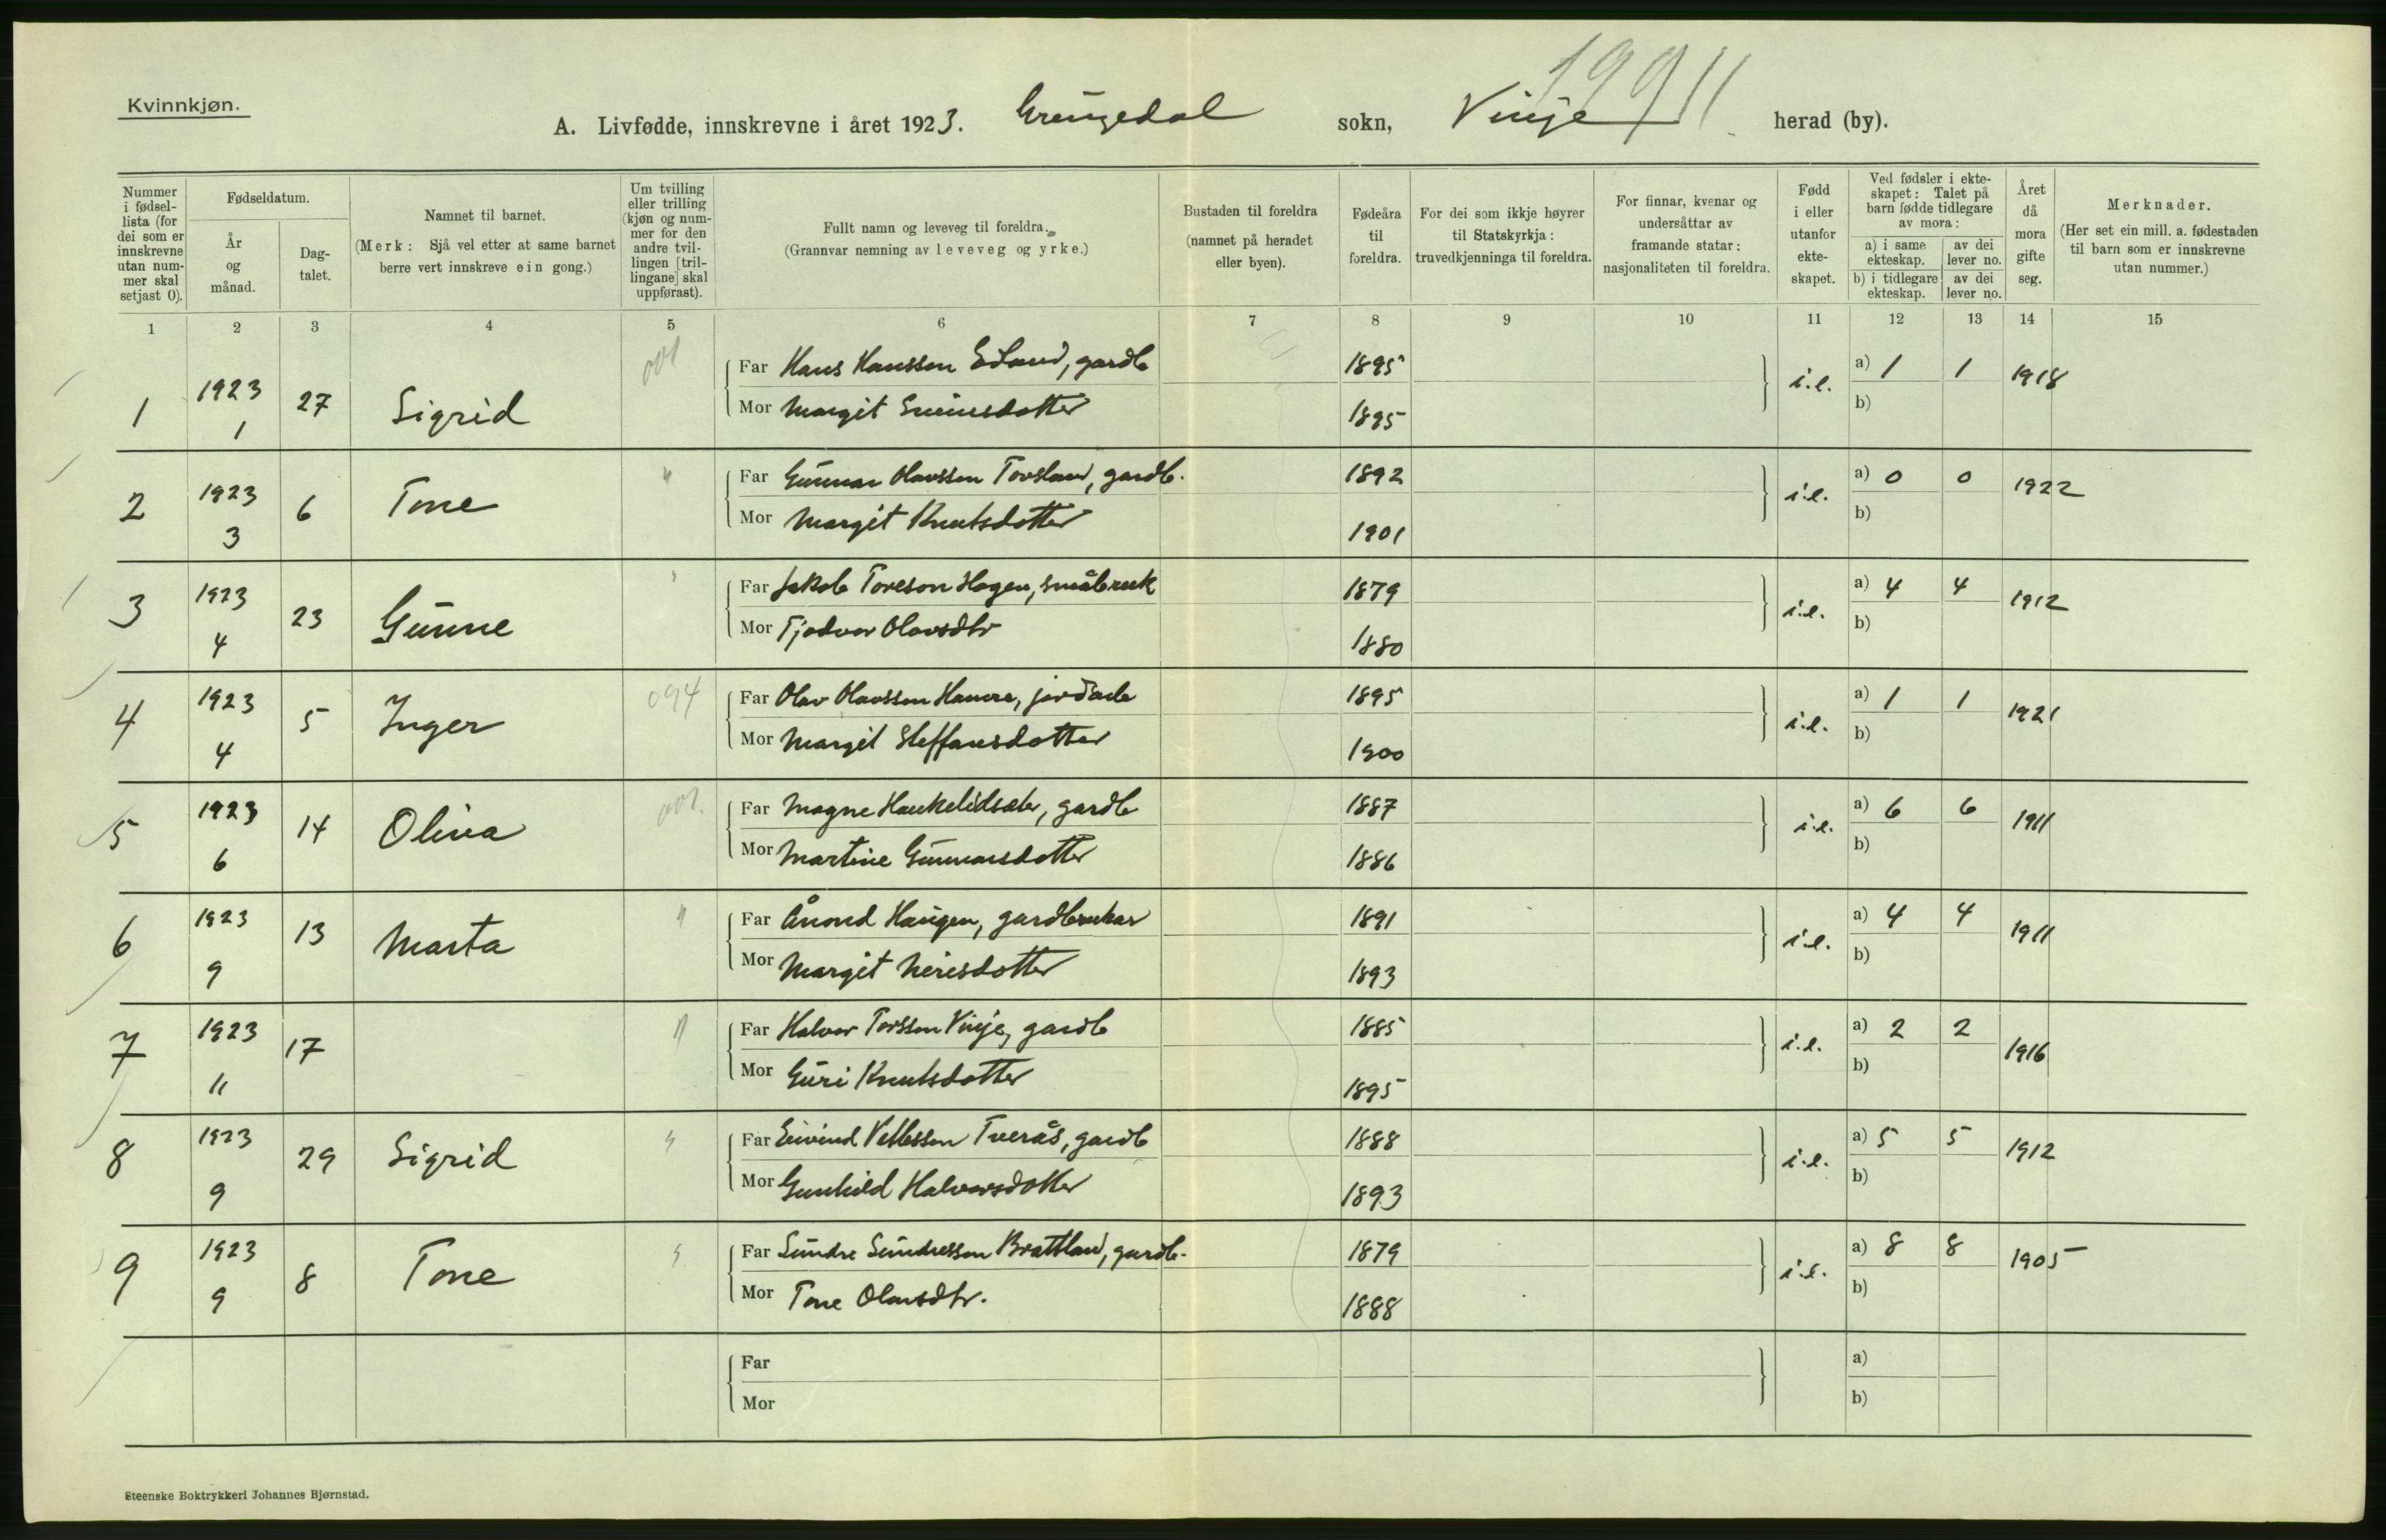 Kvinnkjøn.
A. Livfødde, innskrevne i året 1923. Grungedal sokn, Vinje herad (by).
19911
Nummer i fødsel-lista (for dei som er innskrevne utan num-mer skal setjast 0).
Fødseldatum.
År og månad.
Dag-talet.
Namnet til barnet.
(Merk: Sjå vel etter at same barnet berre vert innskreve ein gong.)
Um tvilling eller trilling (kjøn og num-mer for den andre tvil-lingen [tril-lingane] skal uppførast).
Fullt namn og leveveg til foreldra.
(Grannvar nemning av leveveg og yrke.)
Bustaden til foreldra
(namnet på heradet eller byen).
Fødeåra til foreldra.
For dei som ikkje høyrer til Statskyrkja: truvedkjenninga til foreldra.
For finnar, kvenar og undersåttar av framande statar: nasjonaliteten til foreldra.
Fødd i eller utanfor ekte-skapet.
Ved fødsler i ekte-skapet: Talet på barn fødde tidlegare av mora:
a) i same ekteskap. av dei lever no.
b) i tidlegare ekteskap. av dei lever no.
Året då mora gifte seg.
Merknader.
(Her set ein mill. a. fødestaden til barn som er innskrevne utan nummer.)
1 2 3 4 5 6 7 8 9 10 11 12 13 14 15
1 1923 1 27 Sigrid 001
Far Hans Hansson Edland, gardb 1895 i.e. a) 1 1 1918
Mor Margit 1895 b)
2 1923 3 6 Tone "
Far Gunnar Olavsson Tovsland, gardb. 1892 i.e. a) 0 0 1922
Mor Margit Knutsdotter 1901 b)
3 1923 4 23 Gunne "
Far Jakob Toreson Hagen, småbruk 1879 i.e. a) 4 4 1912
Mor Tjodvor Olavsdtr 1880 b)
4 1923 4 5 Inger 094
Far Olav Olavsson Hamre, 1895 i.e. a) 1 1 1921
Mor Margit Steffansdotter 1900 b)
5 1923 6 14 Oliva 001.
Far Magne Haukelidsæter, gardb 1887 i.e. a) 6 6 1911
Mor Martine Gunnarsdotter 1886 b)
6 1923 9 13 Marta "
Far Ånond Haugen, gardbrukar 1891 i.e. a) 4 4 1911
Mor Margit Neriesdotter 1893 b)
7 1923 11 17 "
Far Halvor Torsson Vinje, gardb 1885 i.e. a) 2 2 1916
Mor Guri Knutsdotter 1895 b)
8 1923 9 29 Sigrid "
Far Eivind Vetlesson Tverås, gardb 1888 i.e. a) 5 5 1912
Mor Gunhild Halvorsdotter 1893 b)
9 1923 9 8 Tone "
Far Sundre Sundresson Brattland, gardb. 1879 i.e. a) 8 8 1905
Mor Tone Olavsdtr. 1888 b)
Far a)
Mor b)
Steenske Boktrykkeri Johannes Bjørnstad.